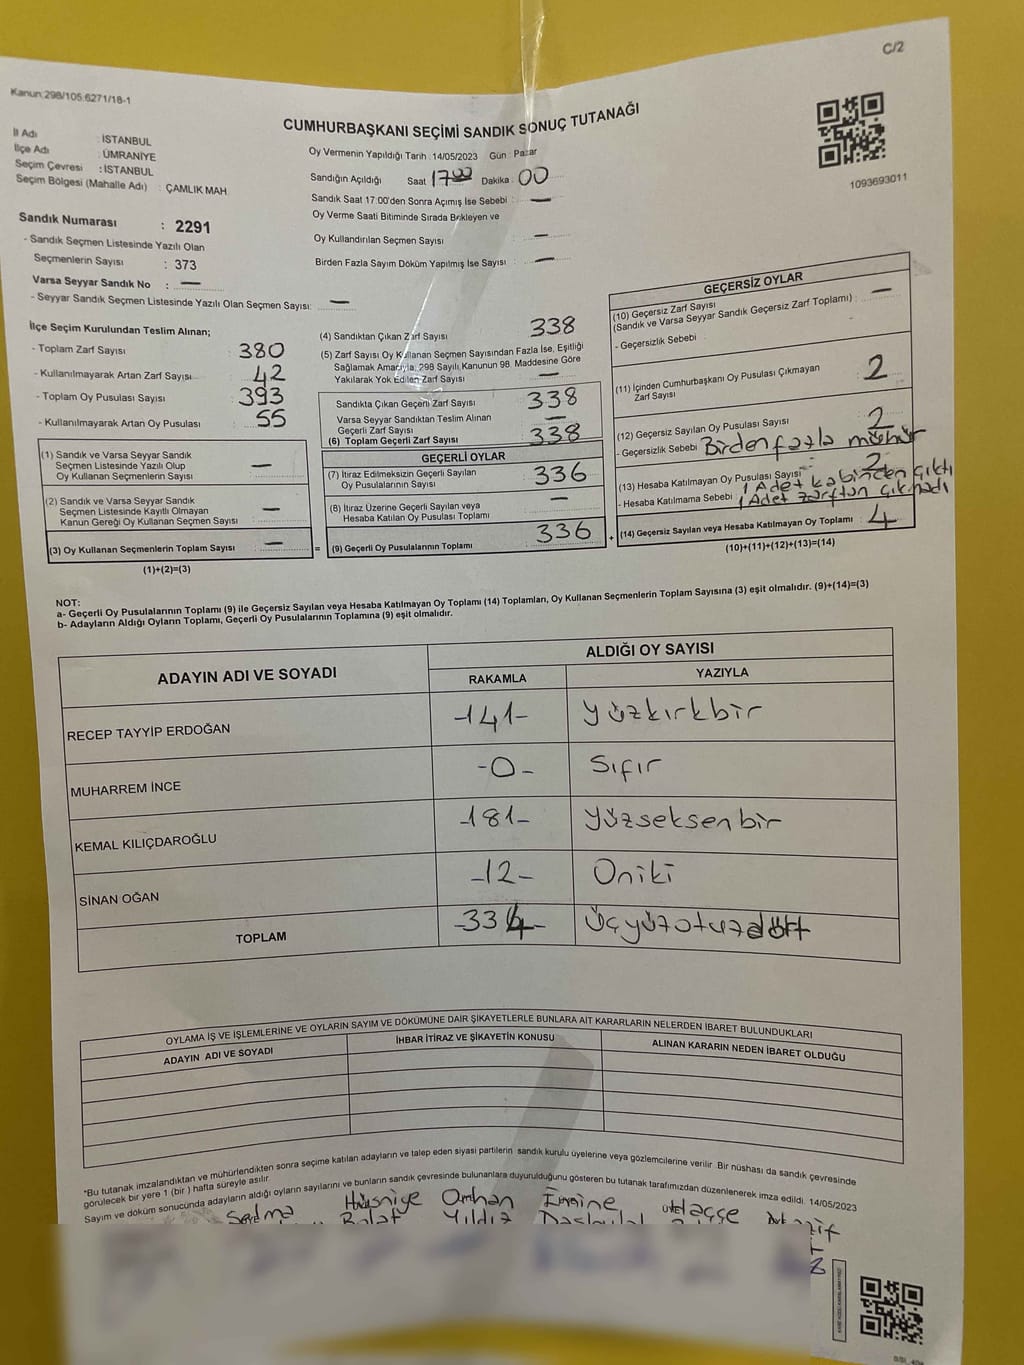 C/2
Kanun:298/105:6271/18-1
CUMHURBAŞKANI SEÇİMİ SANDIK SONUÇ TUTANAĞI
1093693011
İl Adı : İSTANBUL
İlçe Adı : ÜMRANİYE
Seçim Çevresi : İSTANBUL
Seçim Bölgesi (Mahalle Adı) : ÇAMLIK MAH.
Oy Vermenin Yapıldığı Tarih :14/05/2023 Gün : Pazar
Sandığın Açıldığı Saat 17:00 Dakika : 00
Sandık Saat 17:00'den Sonra Açımış İse Sebebi : —
Oy Verme Saati Bitiminde Sırada Bekleyen ve
Oy Kullandırılan Seçmen Sayısı : —
Birden Fazla Sayım Döküm Yapılmış İse Sayısı : —
Sandık Numarası : 2291
- Sandık Seçmen Listesinde Yazılı Olan
Seçmenlerin Sayısı : 373
Varsa Seyyar Sandık No : —
- Seyyar Sandık Seçmen Listesinde Yazılı Olan Seçmen Sayısı: —
İlçe Seçim Kurulundan Teslim Alınan;
- Toplam Zarf Sayısı : 380
- Kullanılmayarak Artan Zarf Sayısı : 42
- Toplam Oy Pusulası Sayısı : 393
- Kullanılmayarak Artan Oy Pusulası : 55
(1) Sandık ve Varsa Seyyar Sandık
Seçmen Listesinde Yazılı Olup
Oy Kullanan Seçmenlerin Sayısı : —
(2) Sandık ve Varsa Seyyar Sandık
Seçmen Listesinde Kayıtlı Olmayan
Kanun Gereği Oy Kullanan Seçmen Sayısı : —
(3) Oy Kullanan Seçmenlerin Toplam Sayısı : —
(1)+(2)=(3)
(4) Sandıktan Çıkan Zarf Sayısı 338
(5) Zarf Sayısı Oy Kullanan Seçmen Sayısından Fazla İse, Eşitliği
Sağlamak Amacıyla; 298 Sayılı Kanunun 98. Maddesine Göre
Yakılarak Yok Edilen Zarf Sayısı —
Sandıkta Çıkan Geçerli Zarf Sayısı 338
Varsa Seyyar Sandıktan Teslim Alınan
Geçerli Zarf Sayısı —
(6) Toplam Geçerli Zarf Sayısı 338
GEÇERLİ OYLAR
(7) İtiraz Edilmeksizin Geçerli Sayılan
Oy Pusulalarının Sayısı 336
(8) İtiraz Üzerine Geçerli Sayılan veya
Hesaba Katılan Oy Pusulası Toplamı —
= (9) Geçerli Oy Pusulalarının Toplamı 336 +
GEÇERSİZ OYLAR
(10) Geçersiz Zarf Sayısı
(Sandık ve Varsa Seyyar Sandık Geçersiz Zarf Toplamı) : —
- Geçersizlik Sebebi
(11) İçinden Cumhurbaşkanı Oy Pusulası Çıkmayan
Zarf Sayısı : 2
(12) Geçersiz Sayılan Oy Pusulası Sayısı : 2
- Geçersizlik Sebebi Birden fazla mühür
(13) Hesaba Katılmayan Oy Pusulası Sayısı : 2
1 Adet kabinden çıktı
- Hesaba Katılmama Sebebi 1 Adet zarftan çıkmadı
(14) Geçersiz Sayılan veya Hesaba Katılmayan Oy Toplamı : 4
(10)+(11)+(12)+(13)=(14)
NOT:
a- Geçerli Oy Pusulalarının Toplamı (9) ile Geçersiz Sayılan veya Hesaba Katılmayan Oy Toplamı (14) Toplamları, Oy Kullanan Seçmenlerin Toplam Sayısına (3) eşit olmalıdır. (9)+(14)=(3)
b- Adayların Aldığı Oyların Toplamı, Geçerli Oy Pusulalarının Toplamına (9) eşit olmalıdır.
ADAYIN ADI VE SOYADI
ALDIĞI OY SAYISI
RAKAMLA YAZIYLA
RECEP TAYYİP ERDOĞAN -141- yüzkırkbir
MUHARREM İNCE -0- Sıfır
KEMAL KILIÇDAROĞLU -181- yüzseksenbir
SİNAN OĞAN -12- Oniki
TOPLAM -334- Üçyüzotuzdört
OYLAMA İŞ VE İŞLEMLERİNE VE OYLARIN SAYIM VE DÖKÜMÜNE DAİR ŞİKAYETLERLE BUNLARA AİT KARARLARIN NELERDEN İBARET BULUNDUKLARI
ADAYIN ADI VE SOYADI İHBAR İTİRAZ VE ŞİKAYETİN KONUSU ALINAN KARARIN NEDEN İBARET OLDUĞU
*Bu tutanak imzalandıktan ve mühürlendikten sonra seçime katılan adayların ve talep eden siyasi partilerin sandık kurulu üyelerine veya gözlemcilerine verilir. Bir nüshası da sandık çevresinde
görülecek bir yere 1 (bir ) hafta süreyle asılır
Sayım ve döküm sonucunda adayların aldığı oyların sayılarını ve bunların sandık çevresinde bulunanlara duyurulduğunu gösteren bu tutanak tarafımızdan düzenlenerek imza edildi. 14/05/2023
Selma Hüsniye Orhan Emine Hacçe
Balat Yıldız